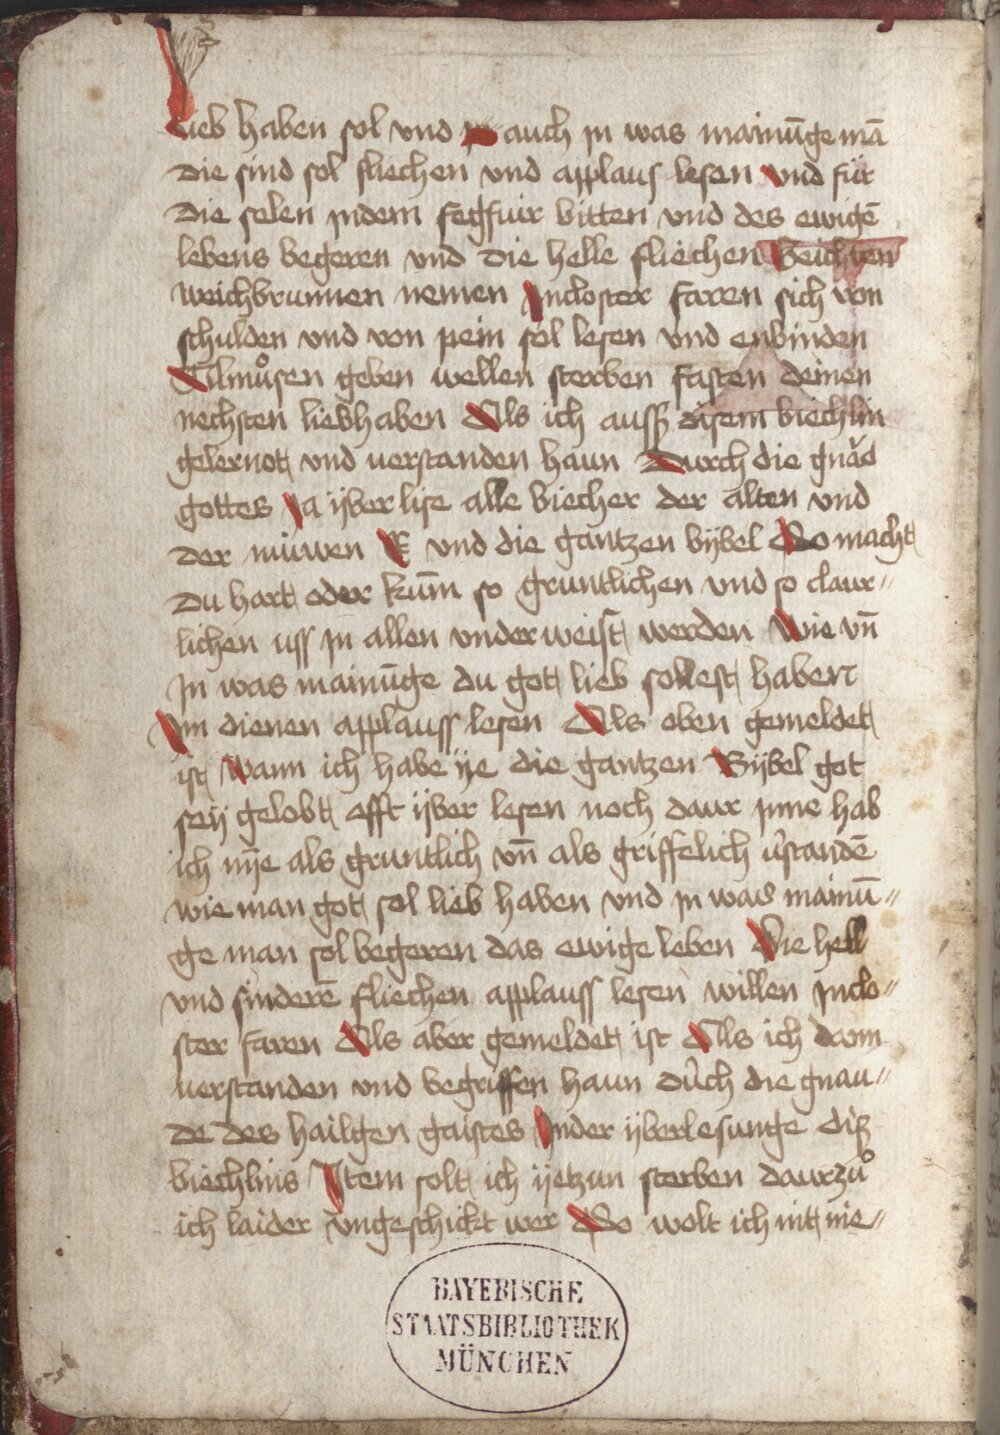 Lieb haben sol vnd auch jn was mainūge mā
Die sind sol fliechen vnd applaus lesen vnd für
Die selen jndem fegfuir bitten vnd des ewigē
lebens begeren vnd die helle fliechen Beichten
weichbrunnen nemen Jncloster faren sich von
schulden vnd von pein sol lesen vnd enbinden
Almůsen geben wellen sterben fasten deinen
nechsten liebhaben Als ich auss disem biechlin
gelernot vnd uerstanden haun Durch die gnăd
gottes Ja ijber lise alle biecher der alten vnd
der nüwen E vnd die gantzen bijbel So macht
Du hart oder kum̄ so gruntlichen vnd so claur〃
lichen uss jn allen vnderweist werden Wie vn̄
Jn was mainūge du got lieb sollest haben
Jm dienen applauss lesen Als oben gemeldet
ist Wann ich habe ije die gantzen Bijbel got
seij gelobt offt ijber lesen noch daur jnne hab
ich nije als gruntlich vn̄ als griffelich v̉standē
wie man got sol lieb haben vnd jn was mainū〃
ge man sol begeren das ewige leben Die hell
vnd sinderē fliechen applauss lesen willen jnclo〃
ster faren Als aber gemeldet ist Als ich dann
uerstanden vnd begriffen haun dủch die gnau〃
de des hailgen gaistes Jnder ijberlesunge diß
biechlins Jtem solt ich ijetzun sterben daurzů
ich laider vngeschickt wer So wolt ich nit nie〃
BAYERISCHE
STAATSBIBLIOTHEK
MÜNCHEN